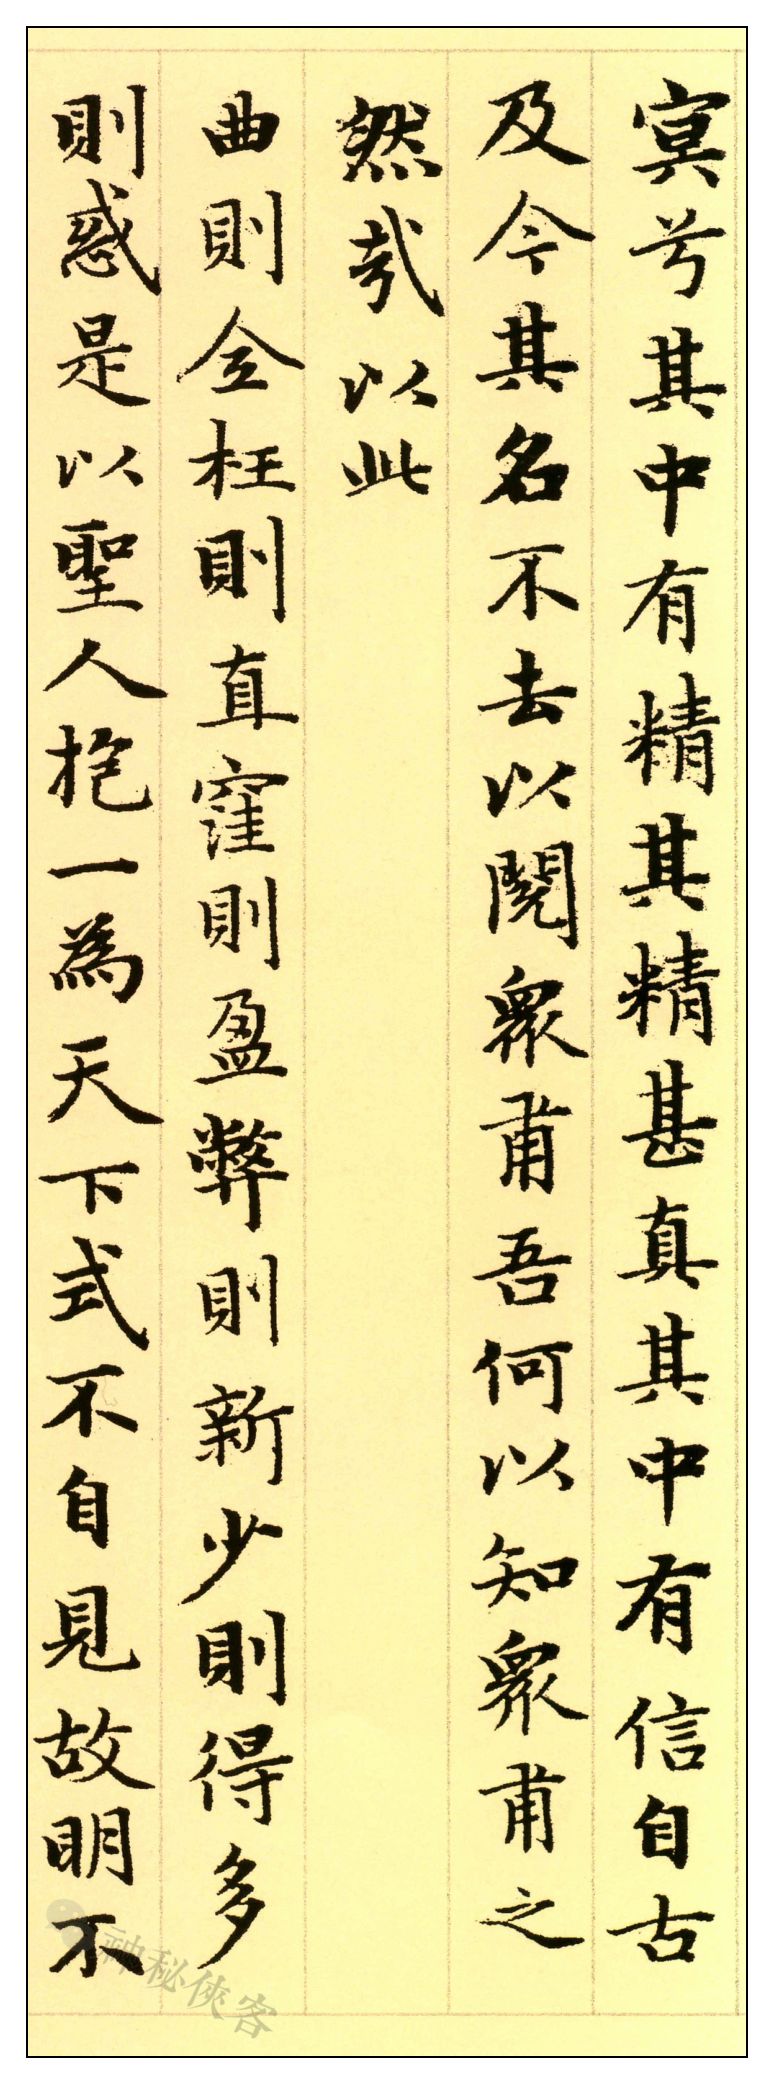 冥兮其中有精其精甚真其中有信自古
及今其名不去以閱衆甫吾何以知衆甫之
然哉以此
曲則全枉則直窪則盈弊則新少則得多
則惑是以聖人抱一為天下式不自見故明不
神秘俠客